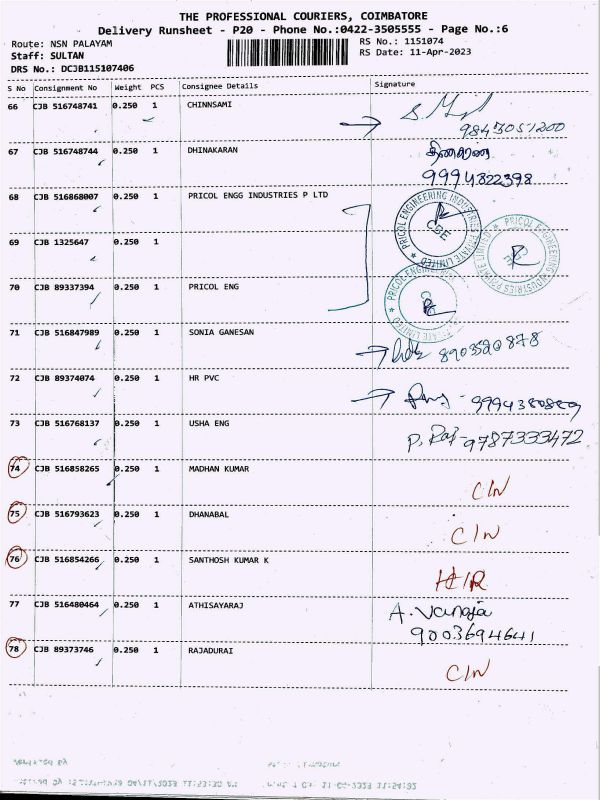 THE PROFESSIONAL COURIERS, COIMBATORE
Delivery Runsheet - P20 - Phone No.:0422-3505555 - Page No.:6
Route: NSN PALAYAM RS No.: 1151074
Staff: SULTAN RS Date: 11-Apr-2023
DRS No.: DCJB115107406
S No Consignment No Weight PCS Consignee Details Signature
66 CJB 516748741 0.250 1 CHINNSAMI
9843051200
67 CJB 516748744 0.250 1 DHINAKARAN
9994822398
68 CJB 516868007 0.250 1 PRICOL ENGG INDUSTRIES P LTD
PRICOL ENGINEERING INDUSTRIES PRIVATE LIMITED
CBE
69 CJB 1325647 0.250 1
PRICOL ENGINEERING INDUSTRIES PRIVATE LIMITED
CBE
70 CJB 89337394 0.250 1 PRICOL ENG
71 CJB 516847989 0.250 1 SONIA GANESAN
8903520878
72 CJB 89374074 0.250 1 HR PVC
73 CJB 516768137 0.250 1 USHA ENG
P. Raj - 9787333472
74 CJB 516858265 0.250 1 MADHAN KUMAR
C/N
75 CJB 516793623 0.250 1 DHANABAL
C/N
76 CJB 516854266 0.250 1 SANTHOSH KUMAR K
77 CJB 516480464 0.250 1 ATHISAYARAJ
A. Vanaja
9003694641
78 CJB 89373746 0.250 1 RAJADURAI
C/N